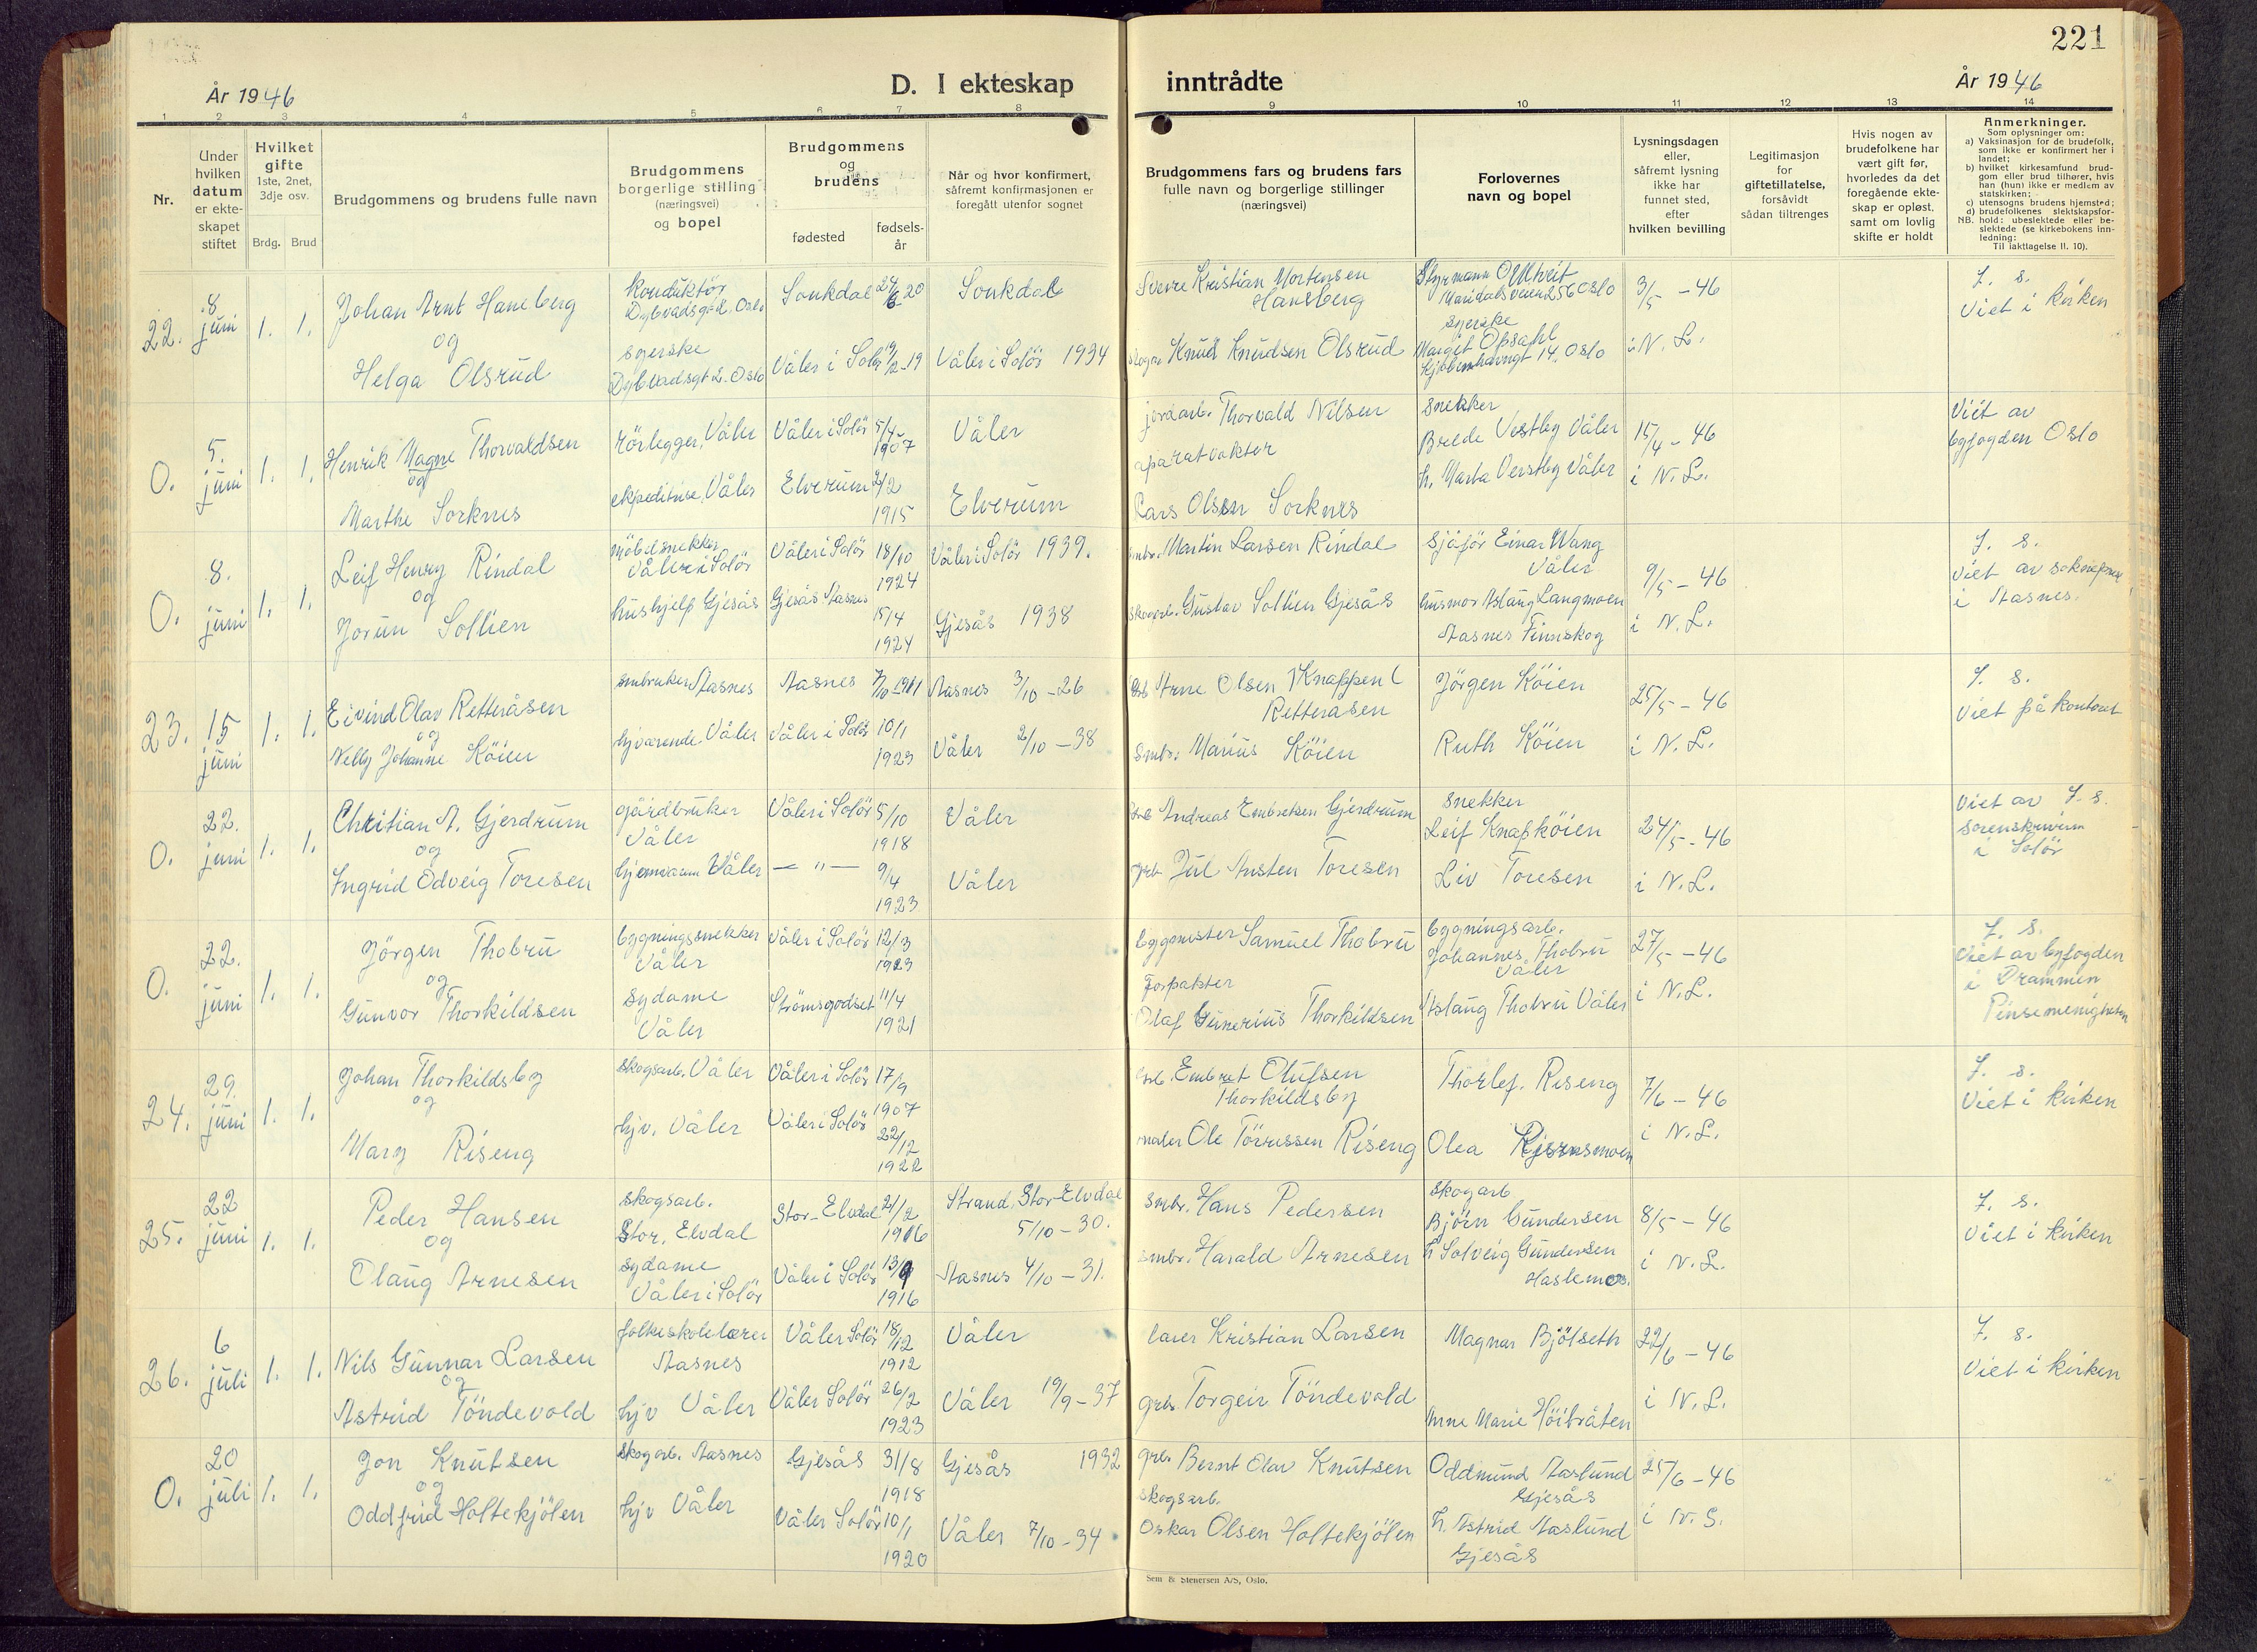 221
År 1946
D. I ekteskap inntrådte
År 1946
1 2 3 4 5 6 7 8 9 10 11 12 13 14
Nr.
Under hvilken datum er ekteskapet stiftet
Hvilket gifte
1ste, 2net, 3dje osv.
Brdg. Brud
Brudgommens og brudens fulle navn
Brudgommens borgerlige stilling (næringsvei) og bopel
Brudgommens og brudens
fødested
fødsels-år
Når og hvor konfirmert, såfremt konfirmasjonen er foregått utenfor sognet
Brudgommens fars og brudens fars fulle navn og borgerlige stillinger (næringsvei)
Forlovernes navn og bopel
Lysningsdagen eller, såfremt lysning ikke har funnet sted, efter hvilken bevilling
Legitimasjon for giftetillatelse, forsåvidt sådan tiltrenges
Hvis nogen av brudefolkene har vært gift før, hvorledes da det foregående ekteskap er opløst, samt om lovlig skifte er holdt
Anmerkninger.
Som oplysninger om:
a) Vaksinasjon for de brudefolk, som ikke er konfirmert her i landet;
b) hvilket kirkesamfund brudgom eller brud tilhører, hvis han (hun) ikke er medlem av statskirken;
c) utensogns brudens hjemsted;
d) brudefolkenes slektskapsforhold: ubeslektede eller beslektede (se kirkebokens innledning:
NB.
Til iakttagelse II. 10).
22. 8 juni 1. 1.
Johan Arnt Haneberg
og
Helga Olsrud
konduktör
Dybvadsgd. Oslo
syerske
Dybvadsgt 2. Oslo
Sonkdal 20
Våler i Solör -19
Sonkdal
Våler i Solör 1934
Sverre Kristian Mortensen
Hansberg
Knut Knudsen Olsrud
Styrmann
Maridalsveien 256 Oslo
syerske
Margit Opsahl
Kjöbenhavngt 14. Oslo
3/5 - 46
i N. L.
J. s.
Viet i kirken
0. 5. juni 1. 1.
Henrik Magne Thorvaldsen
og
Marthe Sorknes
rörlegger, Våler
ekspeditrise, Våler
Våler i Solör 5/4 1907
Elverum 2/2 1915
Våler
Elverum
jordarb. Thorvald Nilsen
aparatvakter
Lars Olsen Sorknes
Snekker
Brede Vestby Våler
h. Marta Vestby Våler
15/4 - 46
i N. L.
Viet av
byfogden Oslo
0. 8. juni 1. 1.
Leif Henry Rindal
og
Jorun Sollien
möbelsnekker
Våler i Solör
hushjelp Gjesås
Våler i Solör 18/10 1924
Gjesås Aasnes 15/4 1924
Våler i Solör 1939.
Gjesås 1938
smbr. Martin Larsen Rindal
skogarb. Gustav Sollien Gjesås
Sjåför Einar Wang
Våler
husmor Aslaug Langmoen
Aasnes Finnskog
9/5 - 46
i N. L.
J. s.
Viet av soknepresten
i Aasnes.
23. 15 juni 1. 1.
Eivind Olav Retteråsen
og
Nelly Johanne Köien
smbruker Aasnes
hjværende Våler
Aasnes 7/10 1911
Våler i Solör 10/1 1923
Aasnes 3/10 - 26
Våler 2/10 - 38
Arne Olsen Knappen
Retteråsen
Smbr. Marius Köien
Jörgen Köien
Ruth Köien
25/5 - 46
i N. L.
J. s.
Viet på kontoret
0. 22. juni 1. 1.
Christian A. Gjerdrum
og
Ingrid Odveig Toresen
gårdbruker
Våler
hjemværen Våler
Våler i Solör 5/10 1918
— " — 9/4 1923
Våler
Våler
Andreas Embretsen Gjerdrum
grb Jul Austen Toresen
Snekker
Leif Knapköien
Liv Toresen
24/5 - 46
i N. L.
Viet av J. s.
sorenskriveren
i Solör
0. 22. juni 1. 1.
Jörgen Thobru
og
Gunvor Thorkildsen
bygningssnekker
Våler
sydame
Våler
Våler i Solör 12/3 1923
Strömsgodset 11/4 1921
byggmester Samuel Thobru
Forpakter
Olaf Gunerius Thorkildsen
bygningsarb.
Johannes Thobru
Våler
Aslaug Thobru Våler
27/5 - 46
i N. L.
J. s.
Viet av byfogden
i Drammen
Pinsemenigheten
24. 29. juni 1. 1.
Johan Thorkildsby
og
Mary Riseng
skogsarb. Våler
hjv. Våler
Våler i Solör 17/9 1907
Våler i Solör 22/12 1922
Embret Olufsen
Thorkildsby
maler Ole Törrissen Riseng
Thorlef. Riseng
Olea Kjernsmoen
7/6 - 46
i N. L.
J. s.
Viet i kirken
25. 22 juni 1. 1.
Peder Hansen
og
Olaug Arnesen
skogsarb.
Stor. Elvdal
sydame
Våler i Solör
Stor-Elvdal 21/2 1916
Våler i Solör 13/9 1916
Strand, Stor Elvdal
5/10 - 30.
Aasnes 4/10 - 31.
smbr. Hans Pedersen
smbr. Harald Arnesen
skogarb
Björn Gundersen
h Solveig Gundersen
Haslemoen.
8/5 - 46
i N. L.
J. s.
Viet i kirken
26. 6 juli 1. 1.
Nils Gunnar Larsen
og
Astrid Töndevold
folkeskolelærer
Aasnes
hjv Våler
Våler Solör 18/12 1912
Våler Solör 26/2 1923
Våler
Våler 19/9 - 37
lærer Kristian Larsen
grb. Torgeir Töndevold
Magnar Bjölseth
Anne Marie Höibråten
22/6 - 46
i N. L.
J. s.
Viet i kirken
0. 20 juli 1. 1.
Jon Knutsen
og
Oddfrid Holtekjölen
skogarb. Aasnes
hjv Våler
Gjesås 31/8 1918
Våler Solör 10/1 1920
Gjesås 1932
Våler 7/10 - 34
grb. Bernt Olav Knutsen
skogsarb.
Oskar Olsen Holtekjölen
Oddmund Aaslund
Gjesås
h. Astrid Aaslund
Gjesås
25/6 - 46
i N. S.
Sem & Stenersen A/S, Oslo.